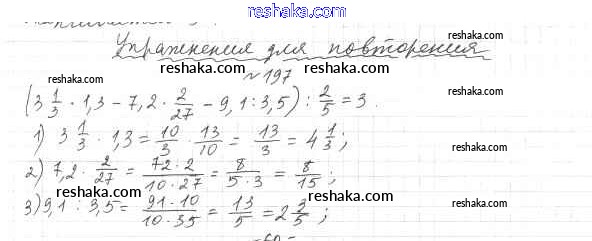 reshaka.com
Упражнения для повторения
reshaka.com reshaka.com
№ 197
reshaka.com reshaka.com
(3 1/3 · 1,3 – 7,2 · 2/27 – 9,1 : 3,5) : 2/5 = 3
reshaka.com
1) 3 1/3 · 1,3 = 10/3 · 13/10 = 13/3 = 4 1/3 ;
reshaka.com
2) 7,2 · 2/27 = 72·2/10·27 = 8/5·3 = 8/15 ;
reshaka.com reshaka.com
3) 9,1 : 3,5 = 91·10/10·35 = 13/5 = 2 3/5 ;